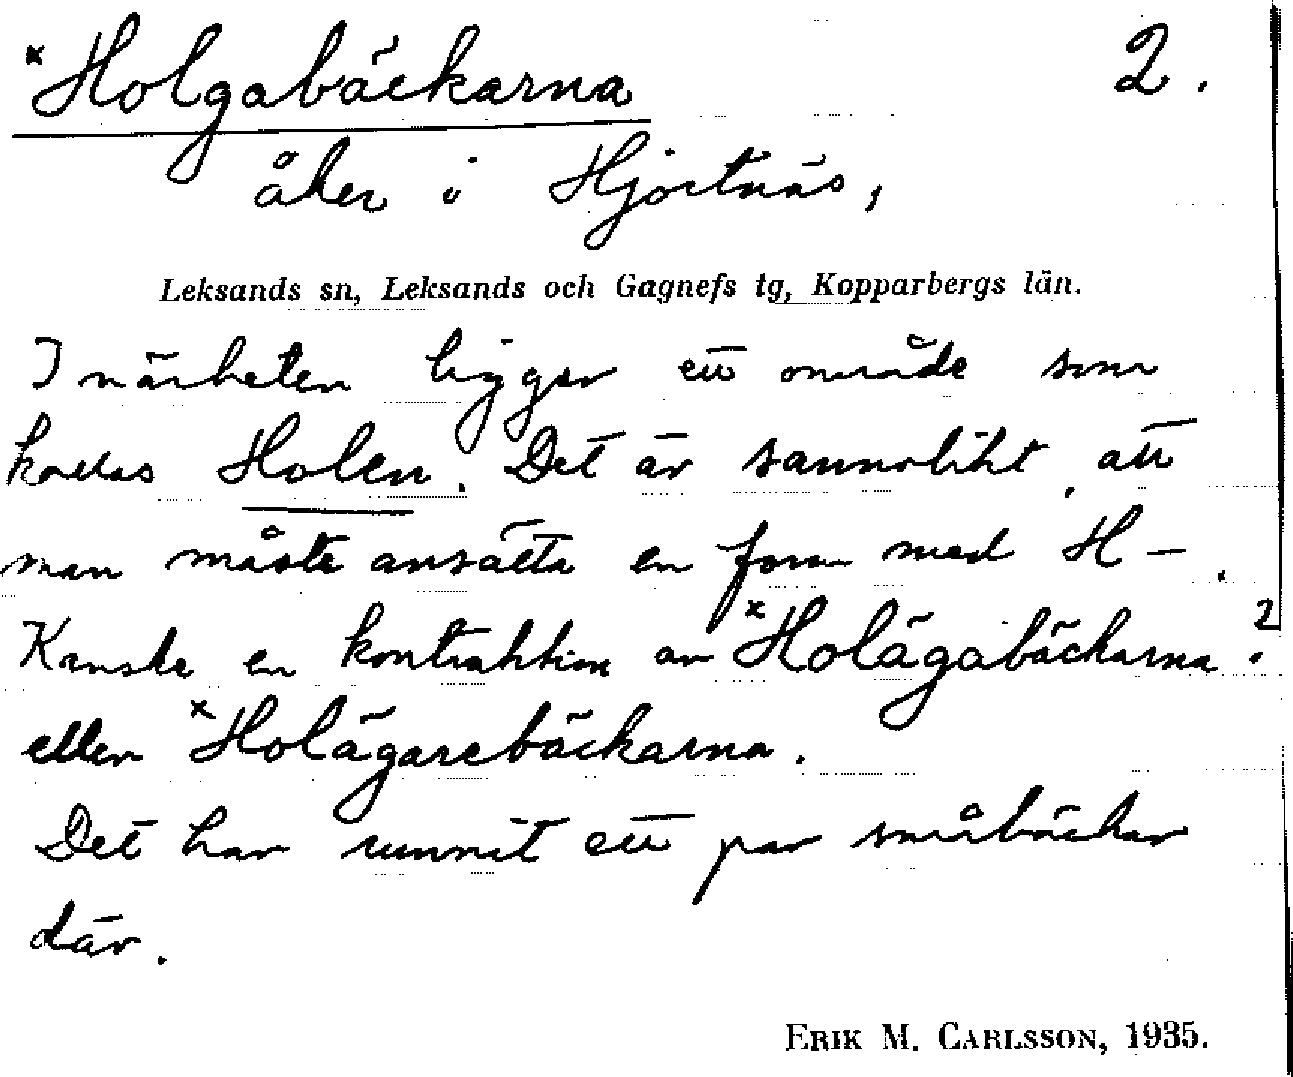 *Holgabäckarna 2.
åker i Hjortnäs,
Leksands sn, Leksands och Gagnefs tg, Kopparbergs län.
I närheten ligger ett område som
kallas Holen. Det är sannolikt, att
man måste ansätta en form med H-.
Kanske en kontraktion av *Holägabäckarna?
eller *Holägarebäckarna.
Det har runnit ett par småbäckar
där.
ERIK M. CARLSSON, 1935.